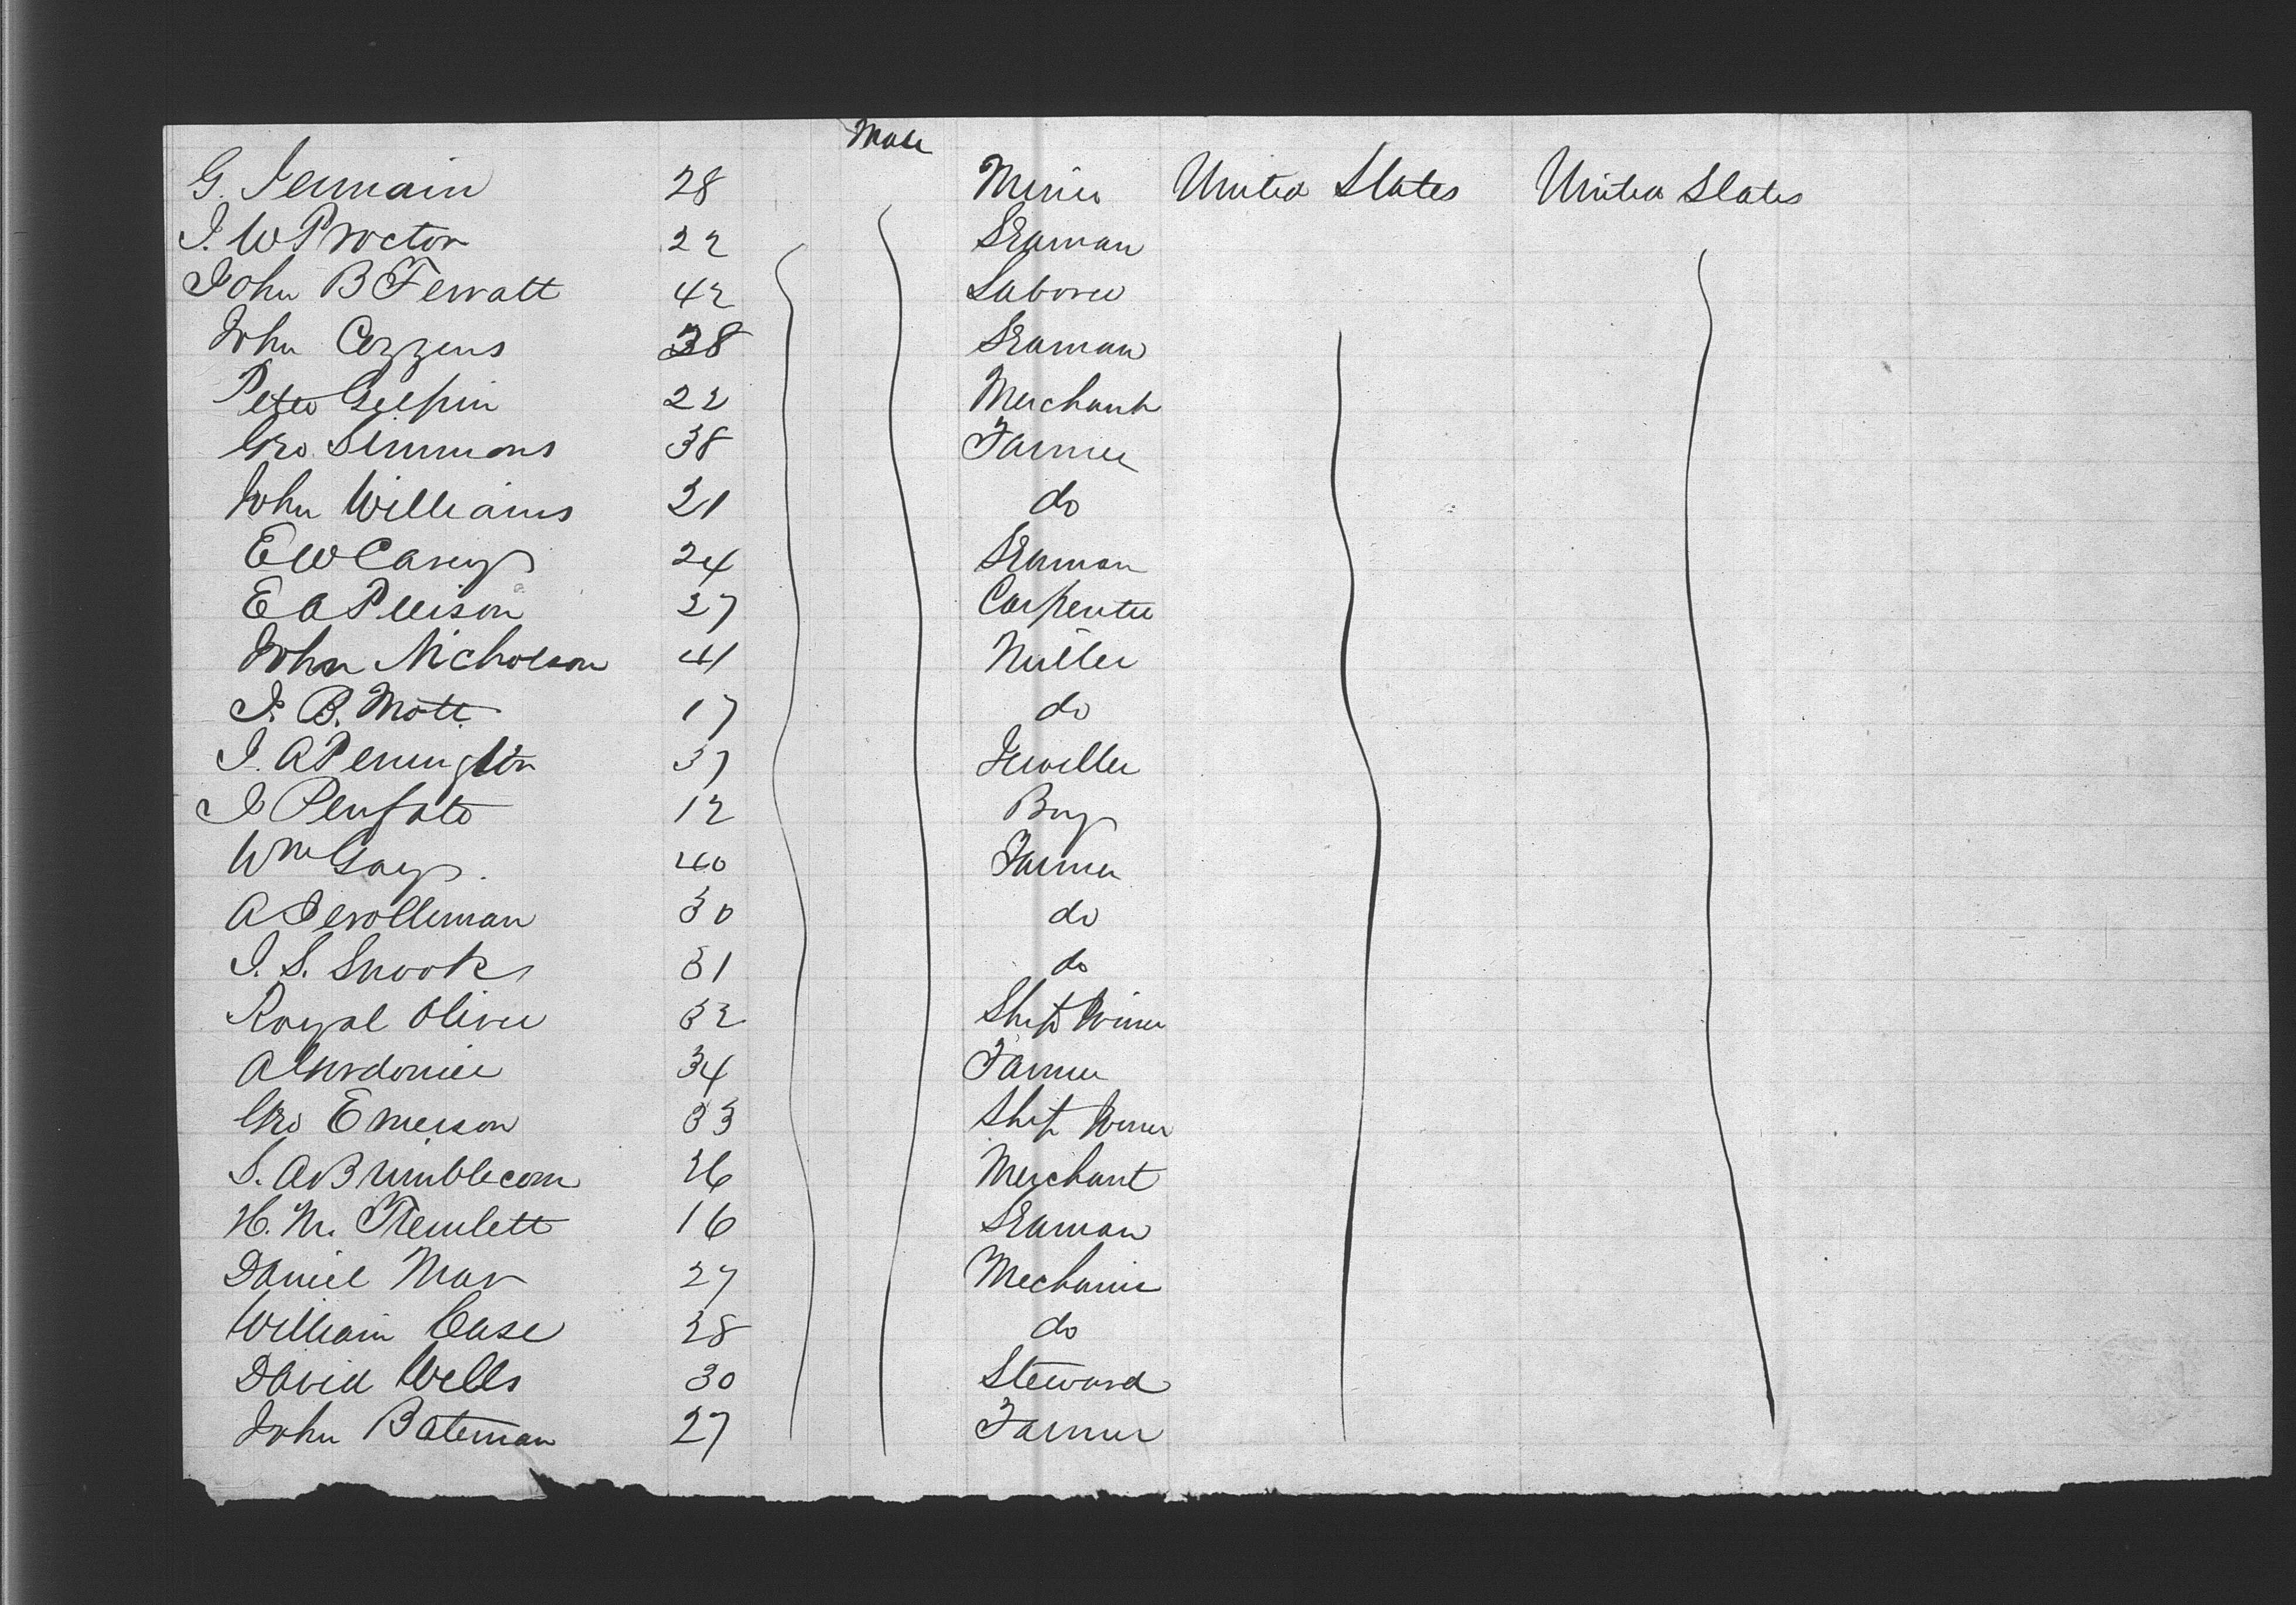 Male
G. Jermain 28 Miner United States United States
J. W Proctor 22 Seaman
John B Ferratt 42 Laborer
John Cozzens 38 Seaman
Peter Gilpin 22 Merchant
Geo Simmons 38 Farmer
John Williams 21 do
E W Carey 24 Seaman
E A 27 Carpenter
John Nicholson 41 Miller
J. B. Mott 17 do
J. A Penington 37 Jeweller
J 12 Boy
Wm Gay 40 Farmer
A 30 do
J. S. Snooks 31 do
Royal Oliver 32 Ship
A 34 Farmer
Geo Emerson 33 Ship
S. A Brimblecom 26 Merchant
H. M. Tremlett 16 Seaman
Daniel Mar 27 Mechanic
William Case 28 do
David Wells 30 Steward
John Bateman 27 Farmer